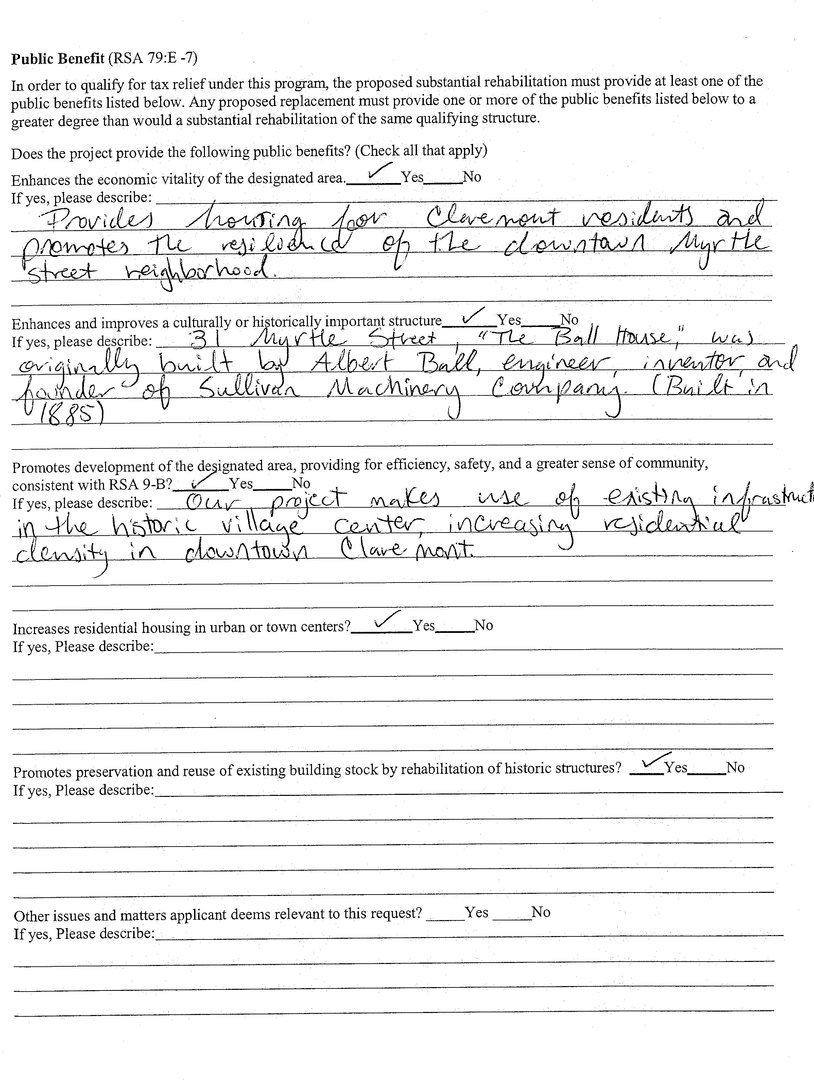 Public Benefit (RSA 79:E -7)
In order to qualify for tax relief under this program, the proposed substantial rehabilitation must provide at least one of the
public benefits listed below. Any proposed replacement must provide one or more of the public benefits listed below to a
greater degree than would a substantial rehabilitation of the same qualifying structure.
Does the project provide the following public benefits? (Check all that apply)
Enhances the economic vitality of the designated area. ✓ Yes____No
If yes, please describe:
Provides housing for Claremont residents and
promotes the of the downtown Myrtle
street neighborhood.
Enhances and improves a culturally or historically important structure ✓ Yes____No
If yes, please describe: 31 Myrtle Street, "The Ball House," was
originally built by Albert Ball, engineer, inventor, and
founder of Sullivan Machinery Company. (Built in
1885)
Promotes development of the designated area, providing for efficiency, safety, and a greater sense of community,
consistent with RSA 9-B? ✓ Yes____No
If yes, please describe: Our project makes use of existing infrastruct
in the historic village center, increasing residential
density in downtown Claremont.
Increases residential housing in urban or town centers? ✓ Yes____No
If yes, Please describe:
Promotes preservation and reuse of existing building stock by rehabilitation of historic structures? ✓ Yes____No
If yes, Please describe:
Other issues and matters applicant deems relevant to this request? ____Yes ____No
If yes, Please describe: